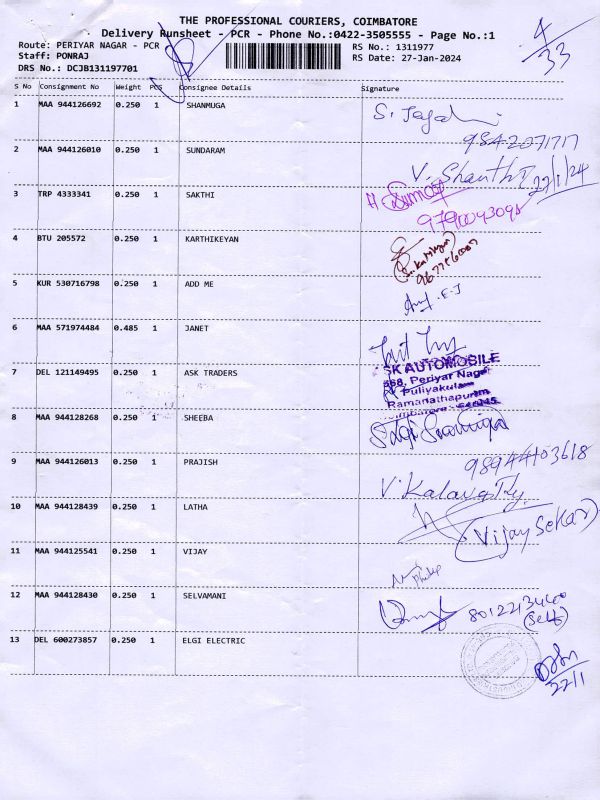 THE PROFESSIONAL COURIERS, COIMBATORE
Delivery Runsheet - PCR - Phone No.:0422-3505555 - Page No.:1
Route: PERIYAR NAGAR - PCR
RS No.: 1311977
Staff: PONRAJ
RS Date: 27-Jan-2024
DRS No.: DCJB131197701
4/33
S No Consignment No Weight PCS Consignee Details Signature
1 MAA 944126692 0.250 1 SHANMUGA
9842071717
2 MAA 944126010 0.250 1 SUNDARAM V. Shanthi 22/1/24
3 TRP 4333341 0.250 1 SAKTHI
4 BTU 205572 0.250 1 KARTHIKEYAN
5 KUR 530716798 0.250 1 ADD ME
6 MAA 571974484 0.485 1 JANET
7 DEL 121149495 0.250 1 ASK TRADERS
SK AUTOMOBILE
568, Periyar Nagar
Puliyakulam
Ramanathapuram
8 MAA 944128268 0.250 1 SHEEBA
9894403618
9 MAA 944126013 0.250 1 PRAJISH
10 MAA 944128439 0.250 1 LATHA
(Vijay Sekar)
11 MAA 944125541 0.250 1 VIJAY
12 MAA 944128430 0.250 1 SELVAMANI
(Self)
13 DEL 600273857 0.250 1 ELGI ELECTRIC
22/1